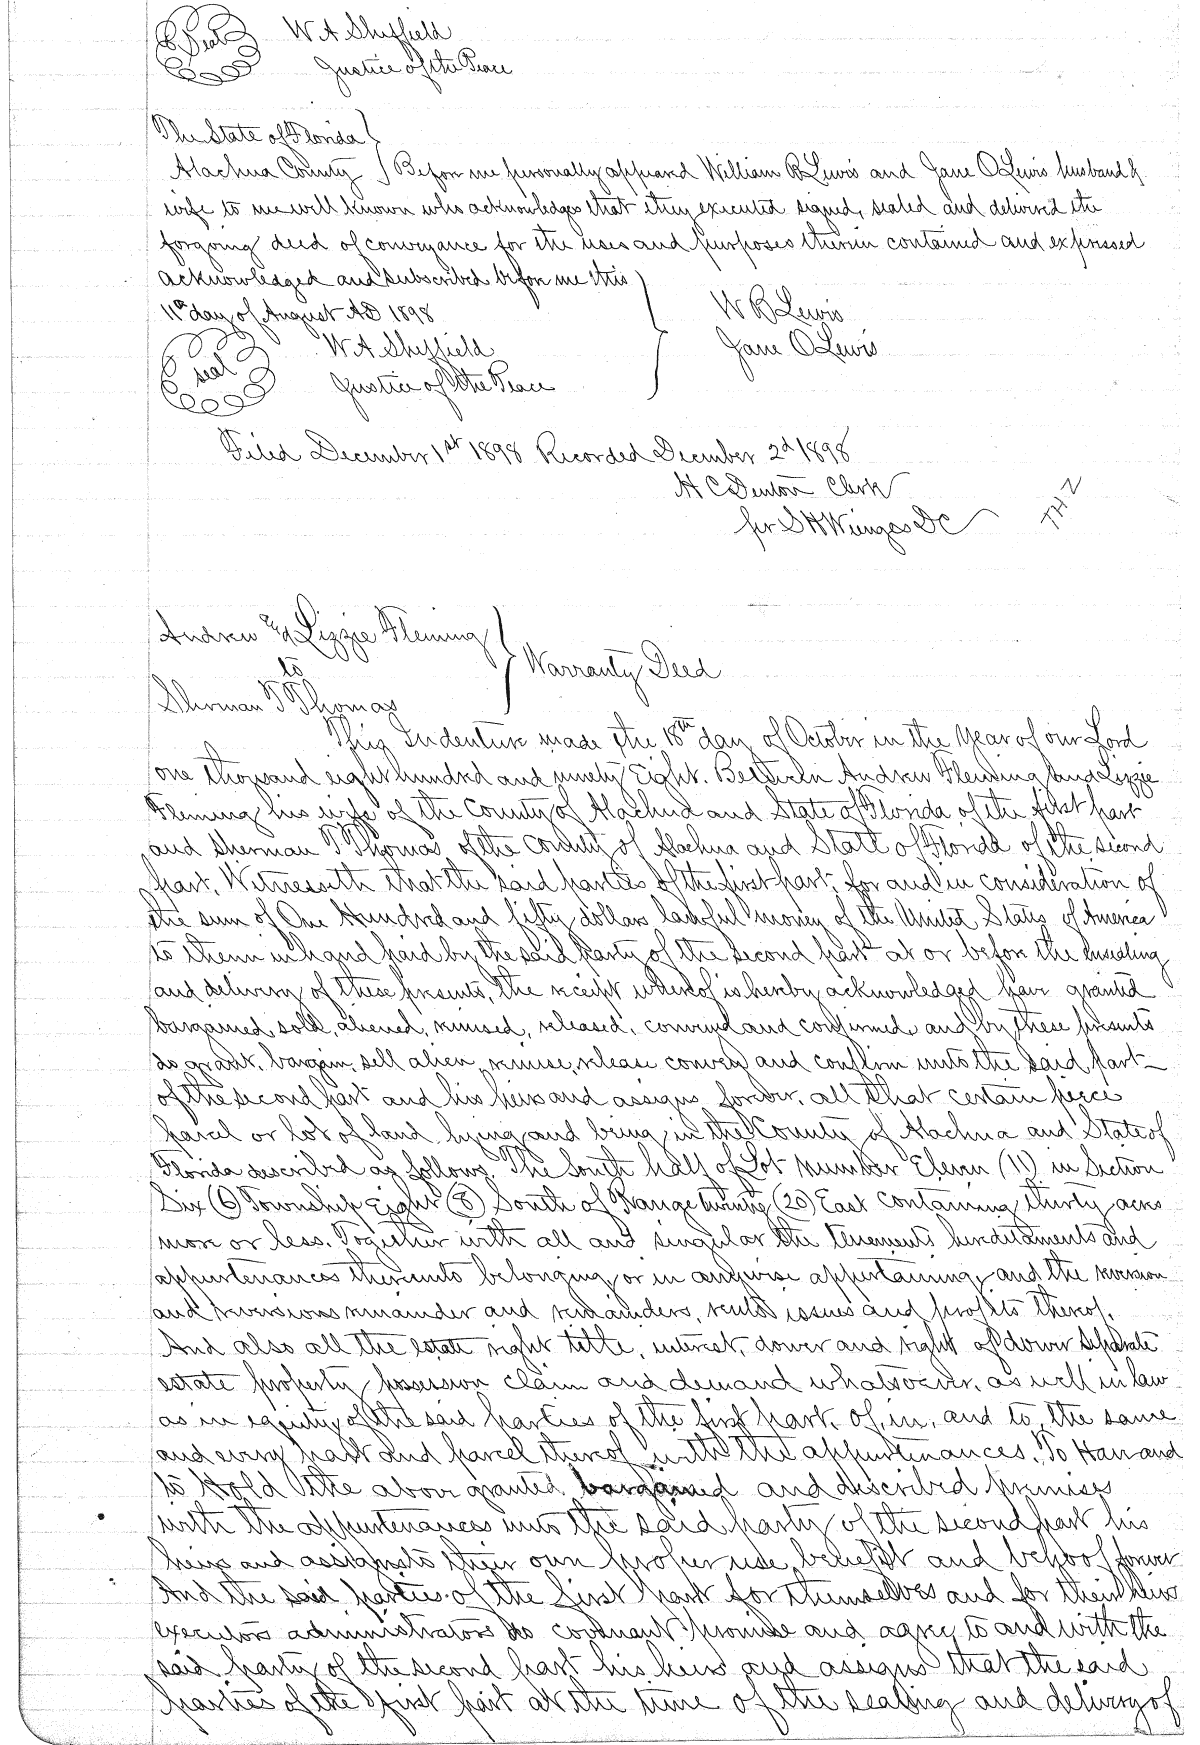 Seal W A Sheffield
Justice of the Peace
The State of Florida
Alachua County } Before me personally appeared William R Lewis and Jane O Lewis husband &
wife to me well known who acknowledges that they executed signed, sealed and delivered the
forgoing deed of conveyance for the uses and purposes therein contained and expressed
Acknowledged and subscribed before me this
11th day of August AD 1898
W R Lewis
Jane O Lewis
seal W A Sheffield
Justice of the Peace
Filed December 1st 1898 Recorded December 2d 1898
H C Denton Clerk
per S H Wienges DC
Andrew & Lizzie Fleming
to } Warranty Deed
Sherman T Thomas
This Indenture made the 18th day of October in the Year of our Lord
one thousand eight hundred and ninety Eight. Between Andrew Fleming and Lizzie
Fleming his wife of the County of Alachua and State of Florida of the first part
and Sherman T Thomas of the County of Alachua and State of Florida of the second
part, Witnesseth that the said parties of the first part, for and in consideration of
the sum of One Hundred and fifty dollars lawful money of the United States of America
to them in hand paid by the said party of the second part at or before the ensealing
and delivery of these presents, the receipt whereof is hereby acknowledged have granted
bargained, sold, aliened, remised, released, conveyed and confirmed and by these presents
do grant, bargain, sell alien, remise, release convey and confirm unto the said part
of the second part and his heirs and assigns forever, all that certain piece
parcel or lot of land lying and being in the County of Alachua and State of
Florida described as follows. The South half of Lot number Eleven (11) in Section
Six (6) Township Eight (8) South of Range twenty (20) East containing thirty acres
more or less. Together with all and singular the tenements hereditaments and
appurtenances thereunto belonging or in anywise appertaining, and the reversion
and reversions remainder and remainders, rents issues and profits thereof.
And also all the estate right title, interest, dower and right of dower separate
estate property possession claim and demand whatsoever, as well in law
as in equity of the said parties of the first part, of, in, and to the same
and every part and parcel thereof with the appurtenances. To Have and
to Hold the above granted bargained and described premises
with the appurtenances unto the said party of the second part his
heirs and assigns to their own proper use, benefit and behoof forever
And the said parties of the first part for themselves and for their heirs
executors administrators do covenant promise and agree to and with the
said party of the second part his heirs and assigns that the said
parties of the first part at the time of the sealing and delivery of